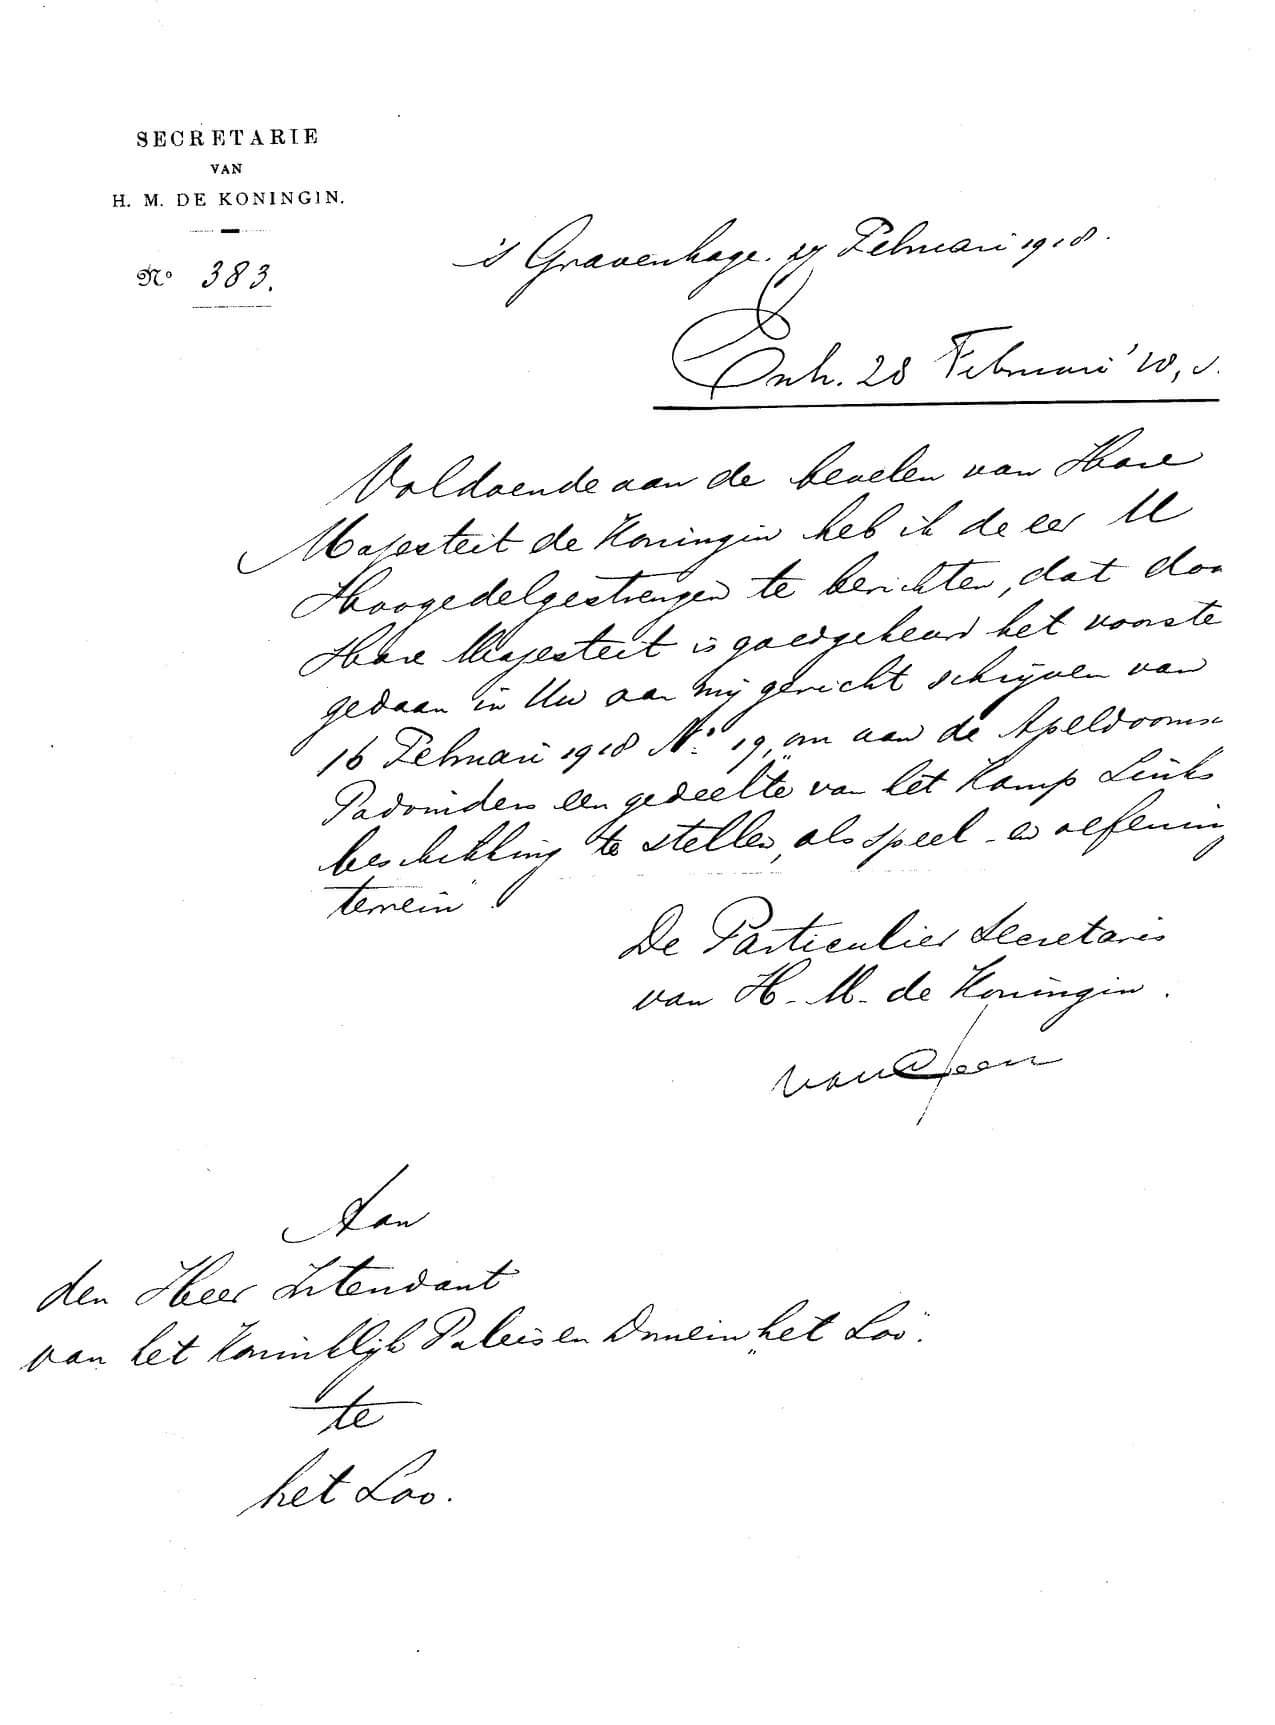 SECRETARIE
VAN
H. M. DE KONINGIN.
No 383.
's Gravenhage. 27 Februari 1918.
Ontv. 28 Februari '18,
Voldoende aan de bevelen van Hare
Majesteit de Koningin heb ik de eer U
Hoogedelgestrengen te berichten, dat door
Hare Majesteit is goedgekeurd het voorste
gedaan in Uw aan mij gericht schrijven van
16 Februari 1918 No. 19, „om aan de Apeldoornsc
Padvinders een gedeelte van het Kamp Links
beschikking te stellen, als speel- en oefening
terrein".
De Particulier Secretaris
van H. M. de Koningin.
van Geen
Aan
den Heer Intendant
van het Koninklijk Paleis en Domein „het Loo".
te
het Loo.